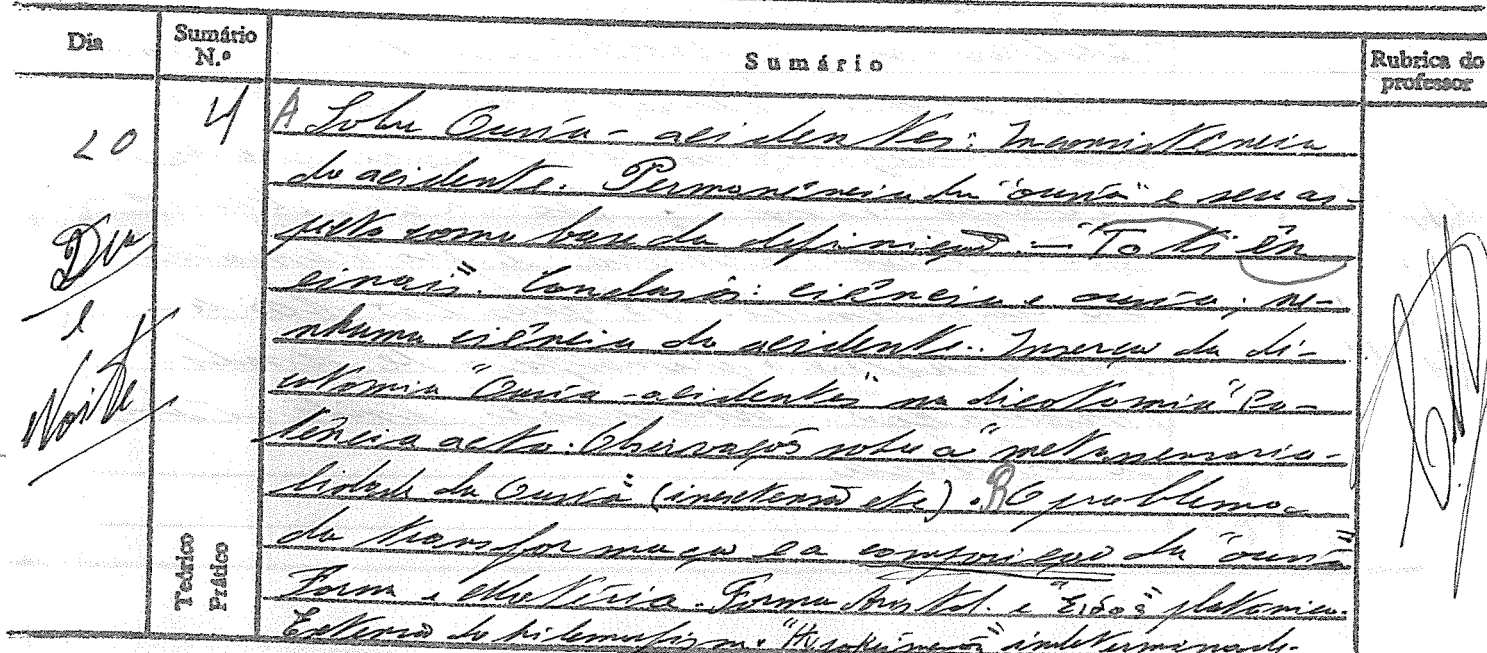 Dia Sumário N.º Sumário Rubrica do professor
20 4 A Sobre Ousía - acidentes: Inconsistência
Dia e Noite
do acidente. Permanência da "ousía" e seu as-
pecto como base da definição - "To ti ên
einai". Conclusão: ciência e ousía; ne-
nhuma ciência do acidente. Inserção da di-
cotomia "Ousía - acidentes" na dicotomia "Po-
tência acto. Observações sobre a "metasensoria-
lidade da Ousía" (inextensão etc). B O problema
da transformação e a composição da "ousía"
Forma e Matéria. Forma Aristot. e "Eidos" platónico.
Extensão do hilemorfismo. "Hypokeímenon" indeterminado.
Teórico
Prático